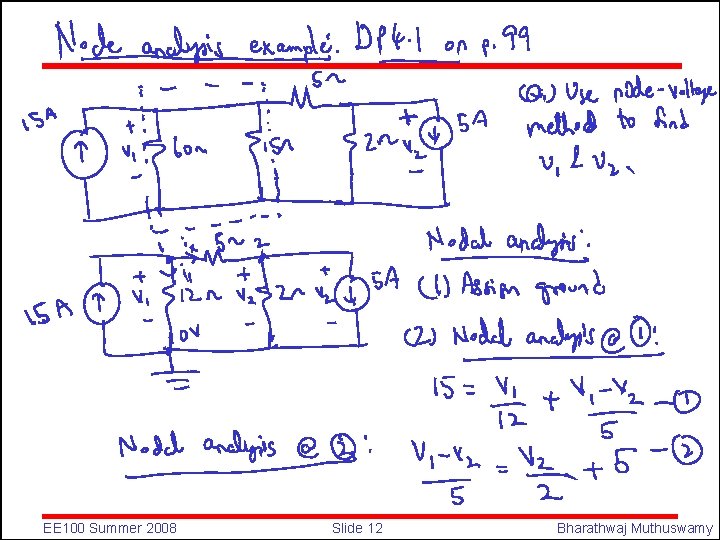 Node analysis example: DP4.1 on p. 99
5Ω
15A
+
V₁
-
60Ω
15Ω
2Ω
+
V₂
-
5A
(Q1) Use node-voltage
method to find
v₁ & v₂.
5Ω 2
15A
+ V₁ -
12Ω
+ V₂ -
2Ω
+ V₂ -
5A
0V
Nodal analysis:
(1) Assign ground
(2) Nodal analysis @ ①:
15 = V₁/12 + (V₁-V₂)/5 - ①
Nodal analysis @ ②:
(V₁-V₂)/5 = V₂/2 + 5 - ②
EE100 Summer 2008 Slide 12 Bharathwaj Muthuswamy